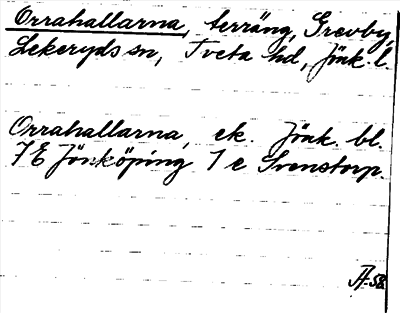 Orrahallarna, terräng, Grevby,
Lekeryds sn, Tveta hd, Jönk. l.
Orrahallarna, ek. Jönk. bl.
7E Jönköping 1 e Svenstorp.
Å-58